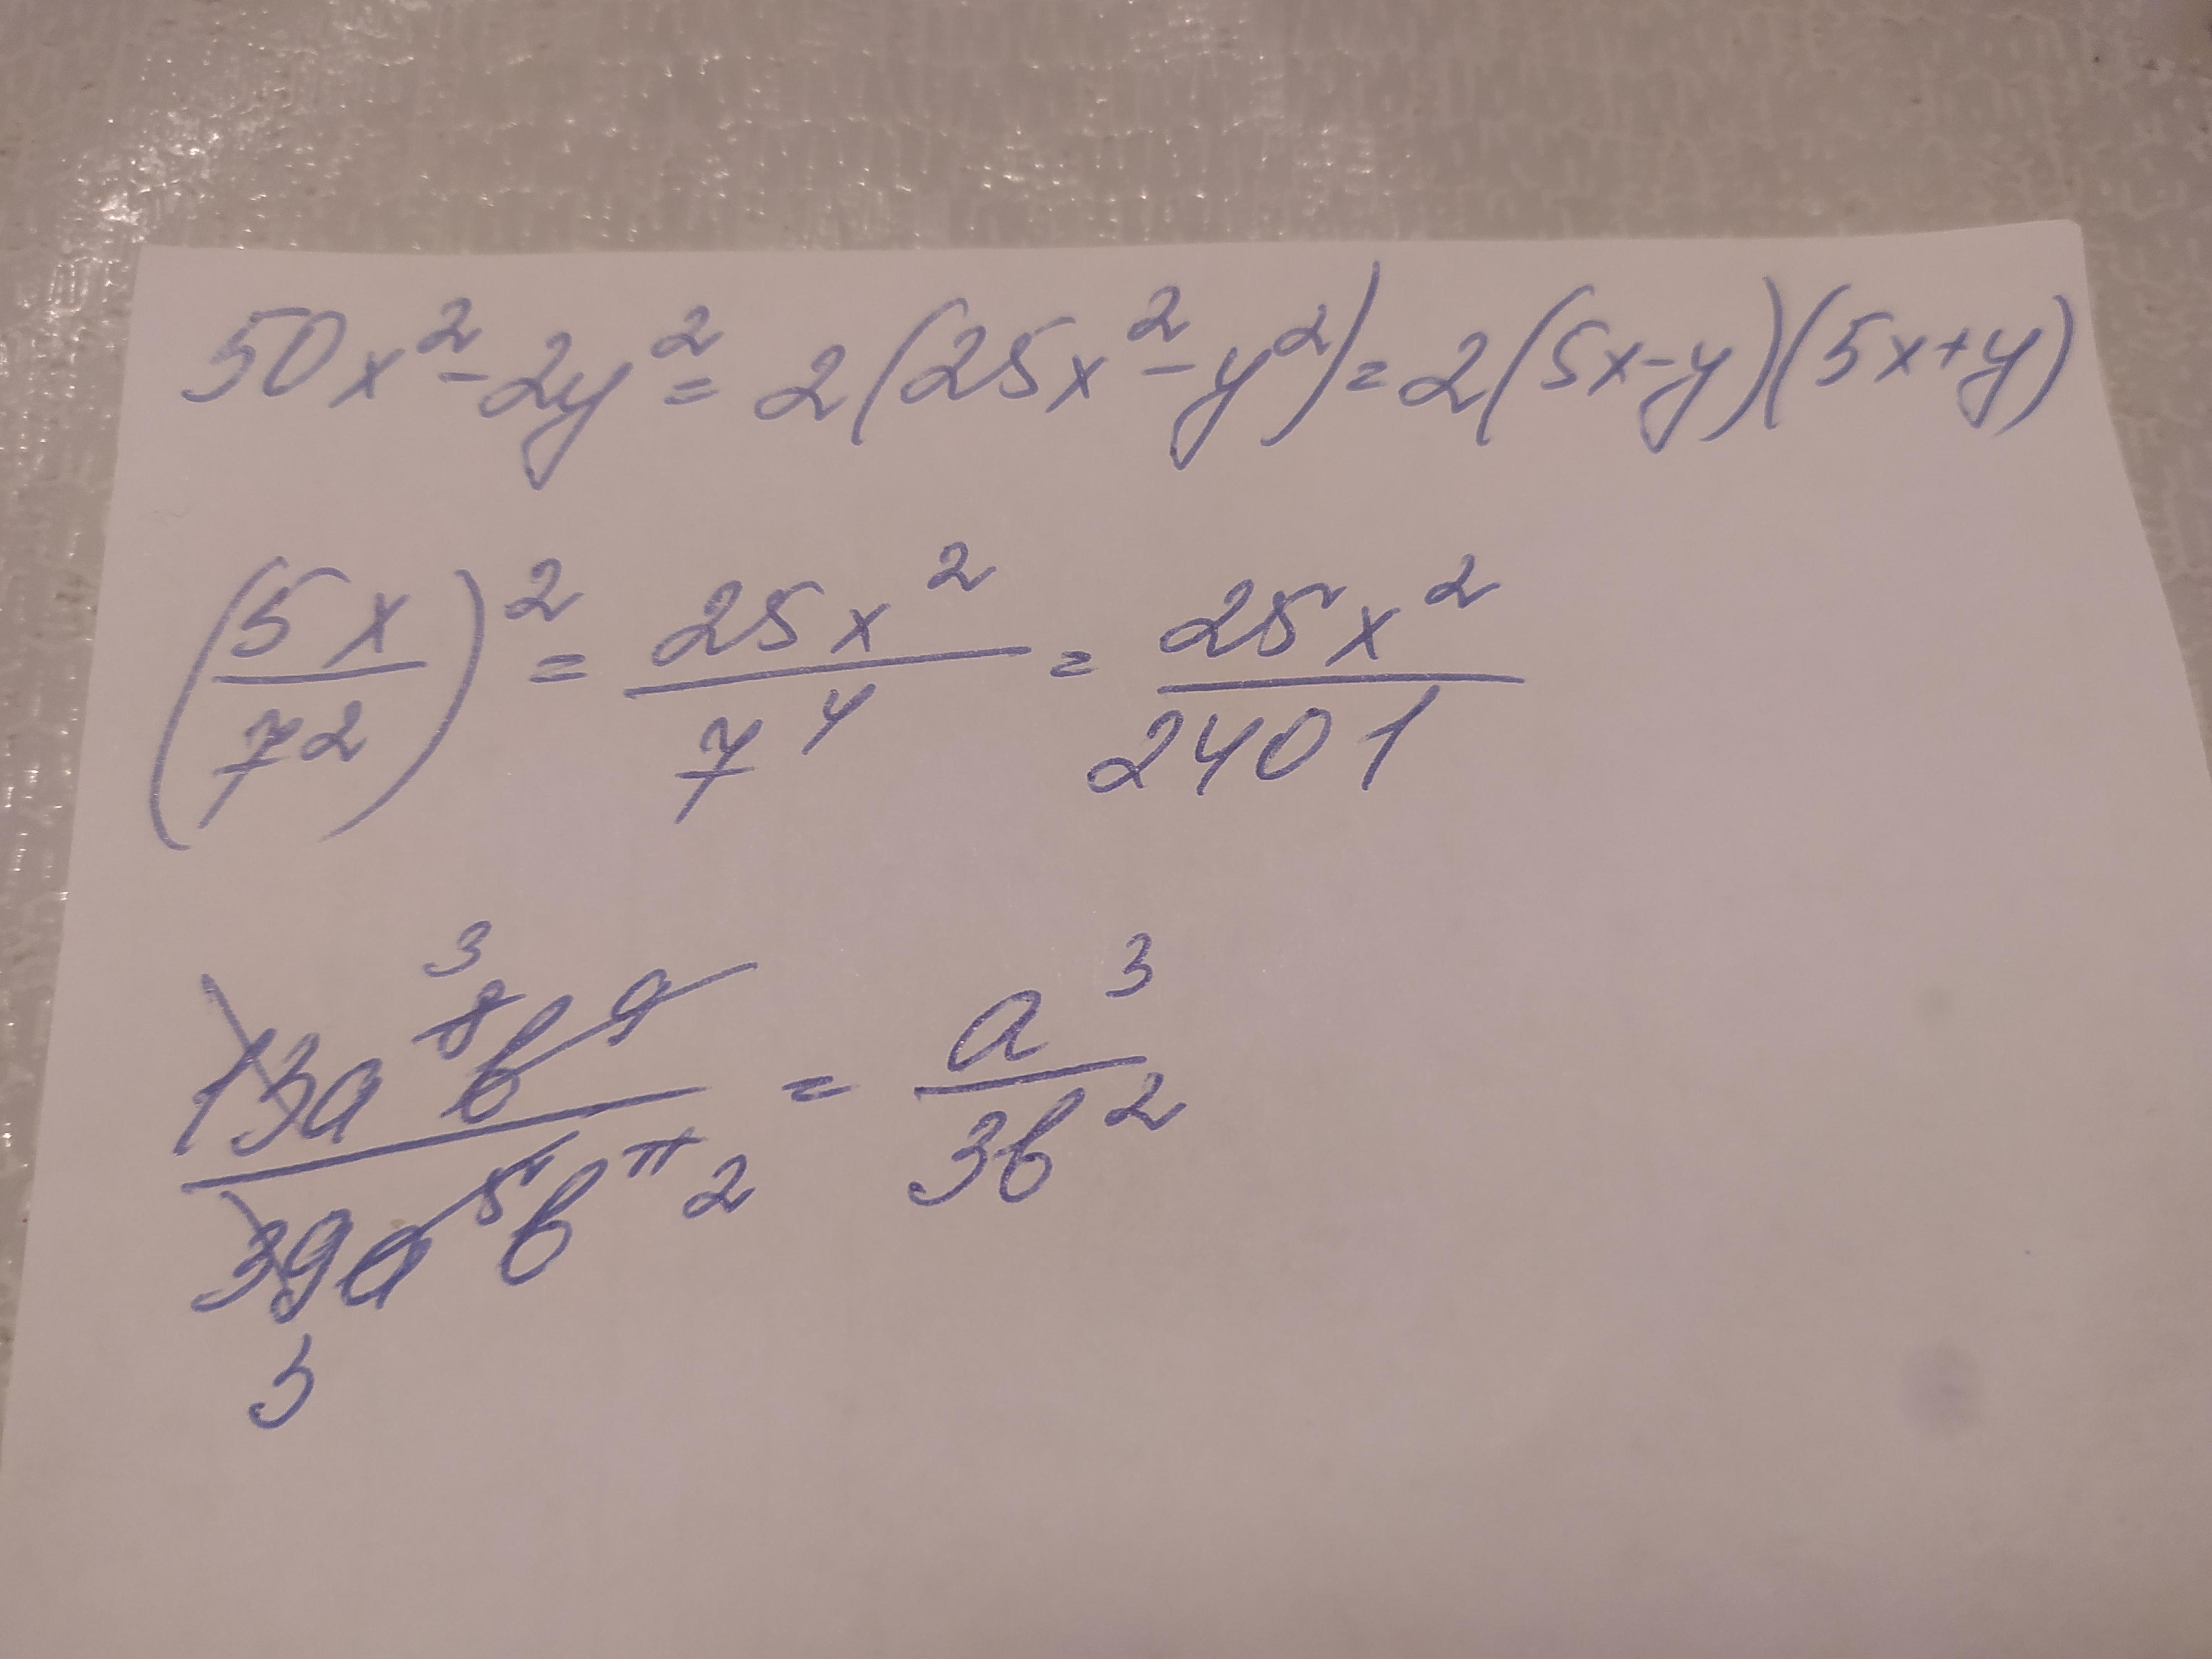 50x² - 2y² = 2(25x² - y²) = 2(5x-y)(5x+y)
(5x/7²)² = 25x²/7⁴ = 25x²/2401
13a⁸b⁹/39a⁵b¹¹ = a³/3b²